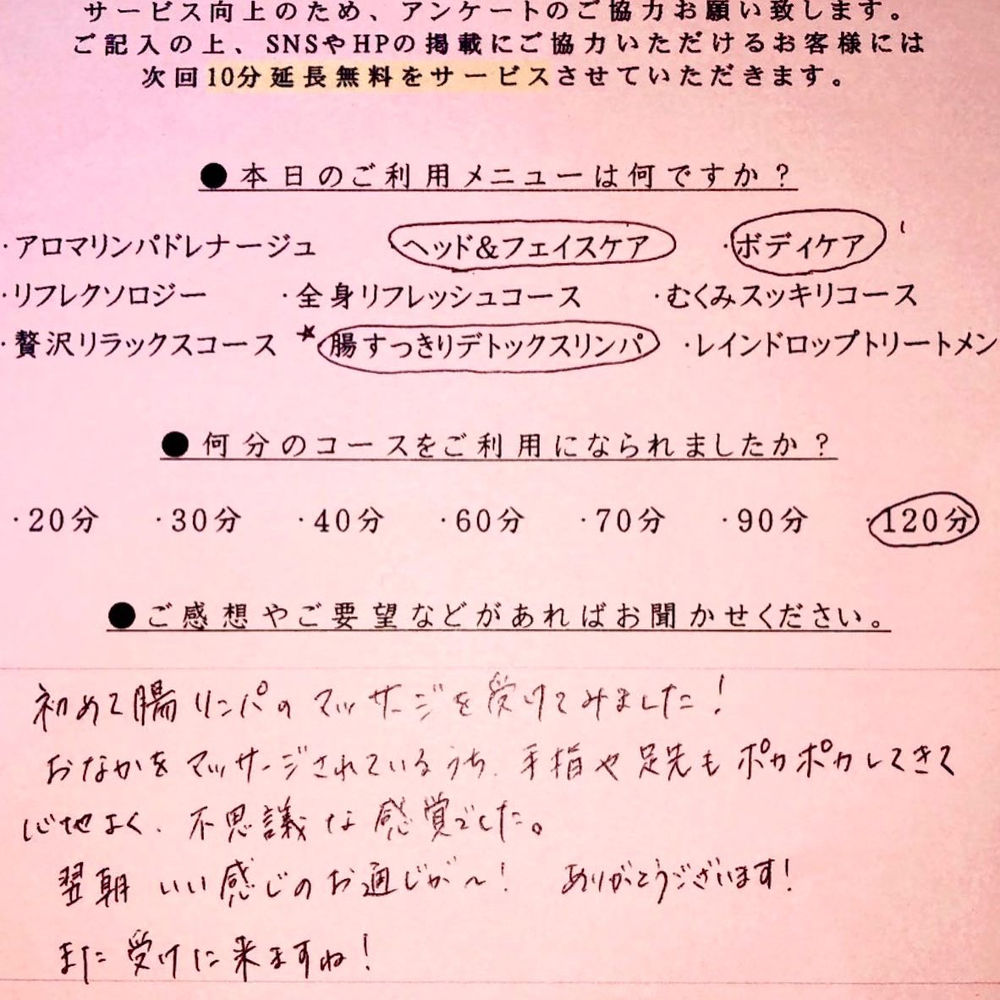 サービス向上のため、アンケートのご協力お願い致します。
ご記入の上、SNSやHPの掲載にご協力いただけるお客様には
次回10分延長無料をサービスさせていただきます。
●本日のご利用メニューは何ですか？
・アロマリンパドレナージュ ヘッド&フェイスケア ・ボディケア
・リフレクソロジー ・全身リフレッシュコース ・むくみスッキリコース
・贅沢リラックスコース ★腸すっきりデトックスリンパ ・レインドロップトリートメン
●何分のコースをご利用になられましたか？
・20分 ・30分 ・40分 ・60分 ・70分 ・90分 ・120分
●ご感想やご要望などがあればお聞かせください。
初めて腸リンパのマッサージを受けてみました！
おなかをマッサージされているうち、手指や足先もポカポカしてきて
心地よく、不思議な感覚でした。
翌朝 いい感じのお通じが〜！ ありがとうございます！
また受けに来ますね！